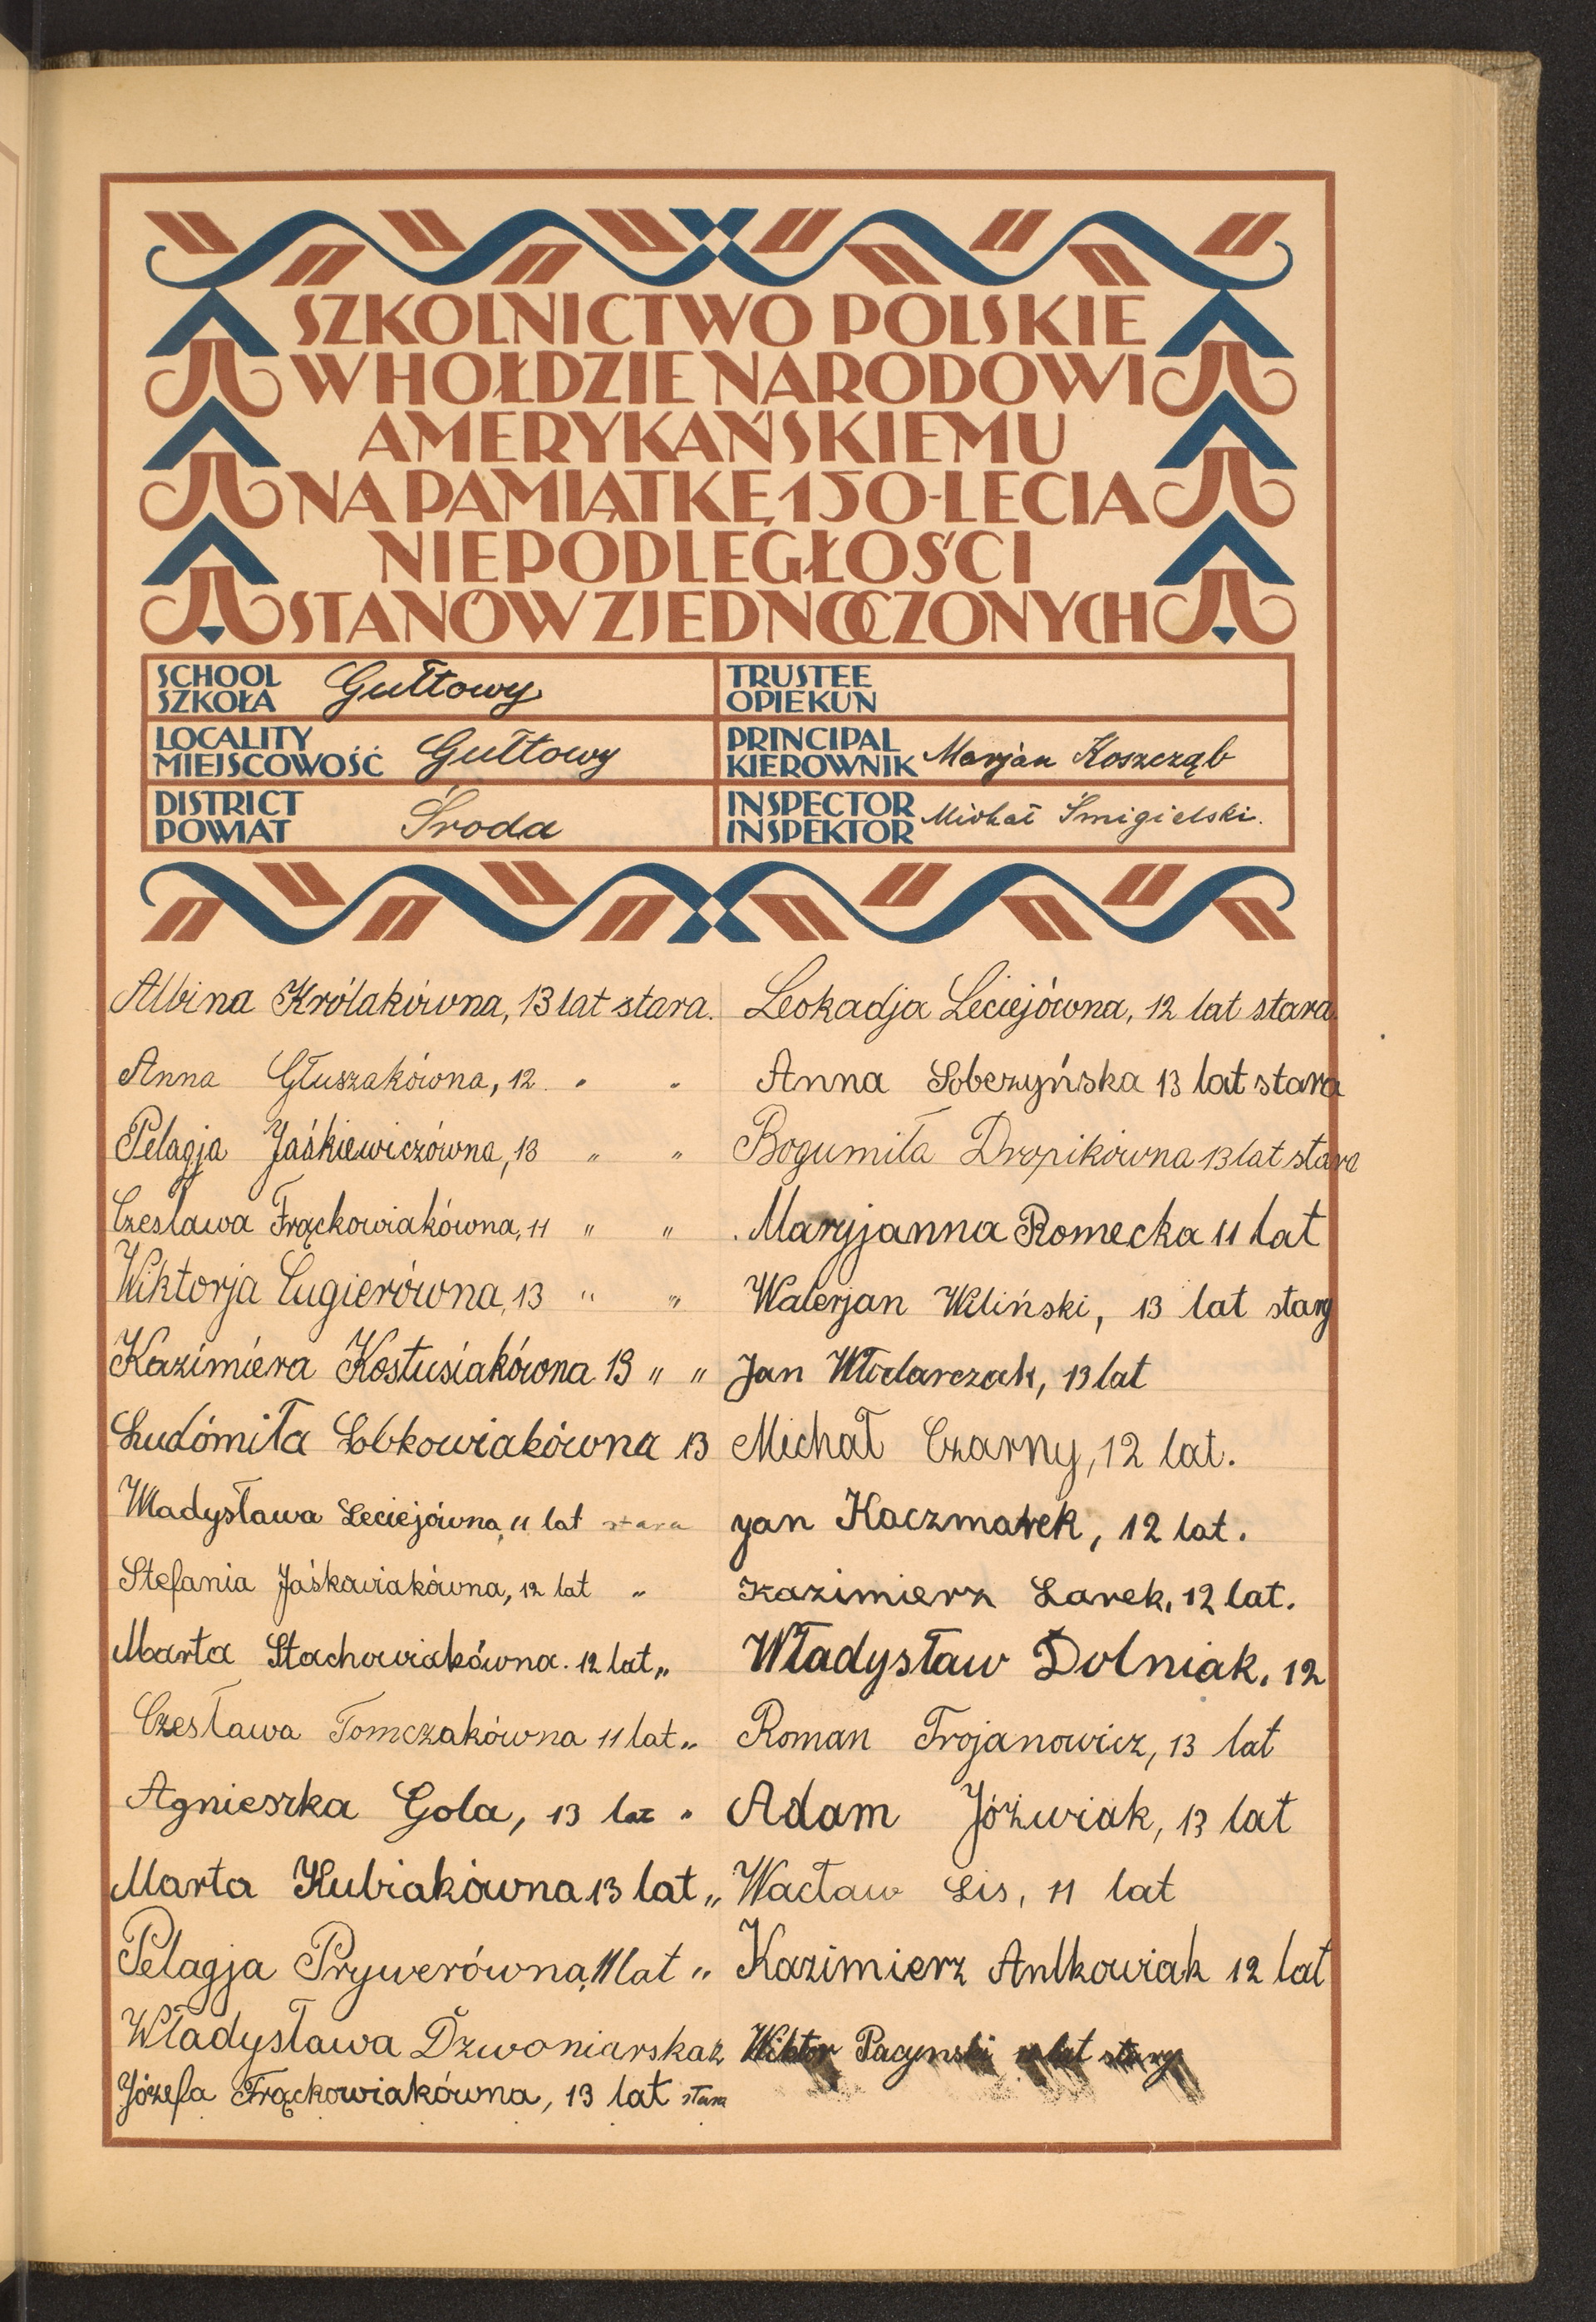 SZKOLNICTWO POLSKIE
W HOŁDZIE NARODOWI
AMERYKAŃSKIEMU
NA PAMIĄTKĘ 150-LECIA
NIEPODLEGŁOŚCI
STANÓW ZJEDNOCZONYCH
SCHOOL
SZKOŁA Gułtowy
TRUSTEE
OPIEKUN
LOCALITY
MIEJSCOWOŚĆ Gułtowy
PRINCIPAL
KIEROWNIK Marjan Koszcząb
DISTRICT
POWIAT Środa
INSPECTOR
INSPEKTOR Michał Śmigielski.
Albina Królakówna, 13 lat stara.
Anna Głuszakówna, 12 " "
Pelagja Jaśkiewiczówna, 13 " "
Czesława Frąckowiakówna, 11 " "
Wiktorja Cugierówna, 13 " "
Kazimiera Kostusiakówna 13 " "
Ludómiła Sobkowiakówna 13
Władysława Leciejówna, 11 lat stara
Stefania Jaśkowiakówna, 12 lat "
Marta Stachowiakówna. 12 lat "
Czesława Tomczakówna 11 lat "
Agnieszka Gola, 13 lat "
Marta Kubiakówna 13 lat "
Pelagja Prywerówna, 11 lat "
Władysława Dzwoniarska
Józefa Frąckowiakówna, 13 lat stara
Leokadja Leciejówna, 12 lat stara.
Anna Sobczyńska 13 lat stara
Bogumiła Dropikówna 13 lat stara
Maryjanna Romecka 11 lat
Walerjan Wiliński, 13 lat stary
Jan Włodarczak, 13 lat
Michał Czarny, 12 lat.
Jan Kaczmarek, 12 lat.
Kazimierz Larek, 12 lat.
Władysław Dolniak, 12
Roman Trojanowicz, 13 lat
Adam Jóźwiak, 13 lat
Wacław Lis, 11 lat
Kazimierz Antkowiak 12 lat
Wiktor Pacynski lat stary